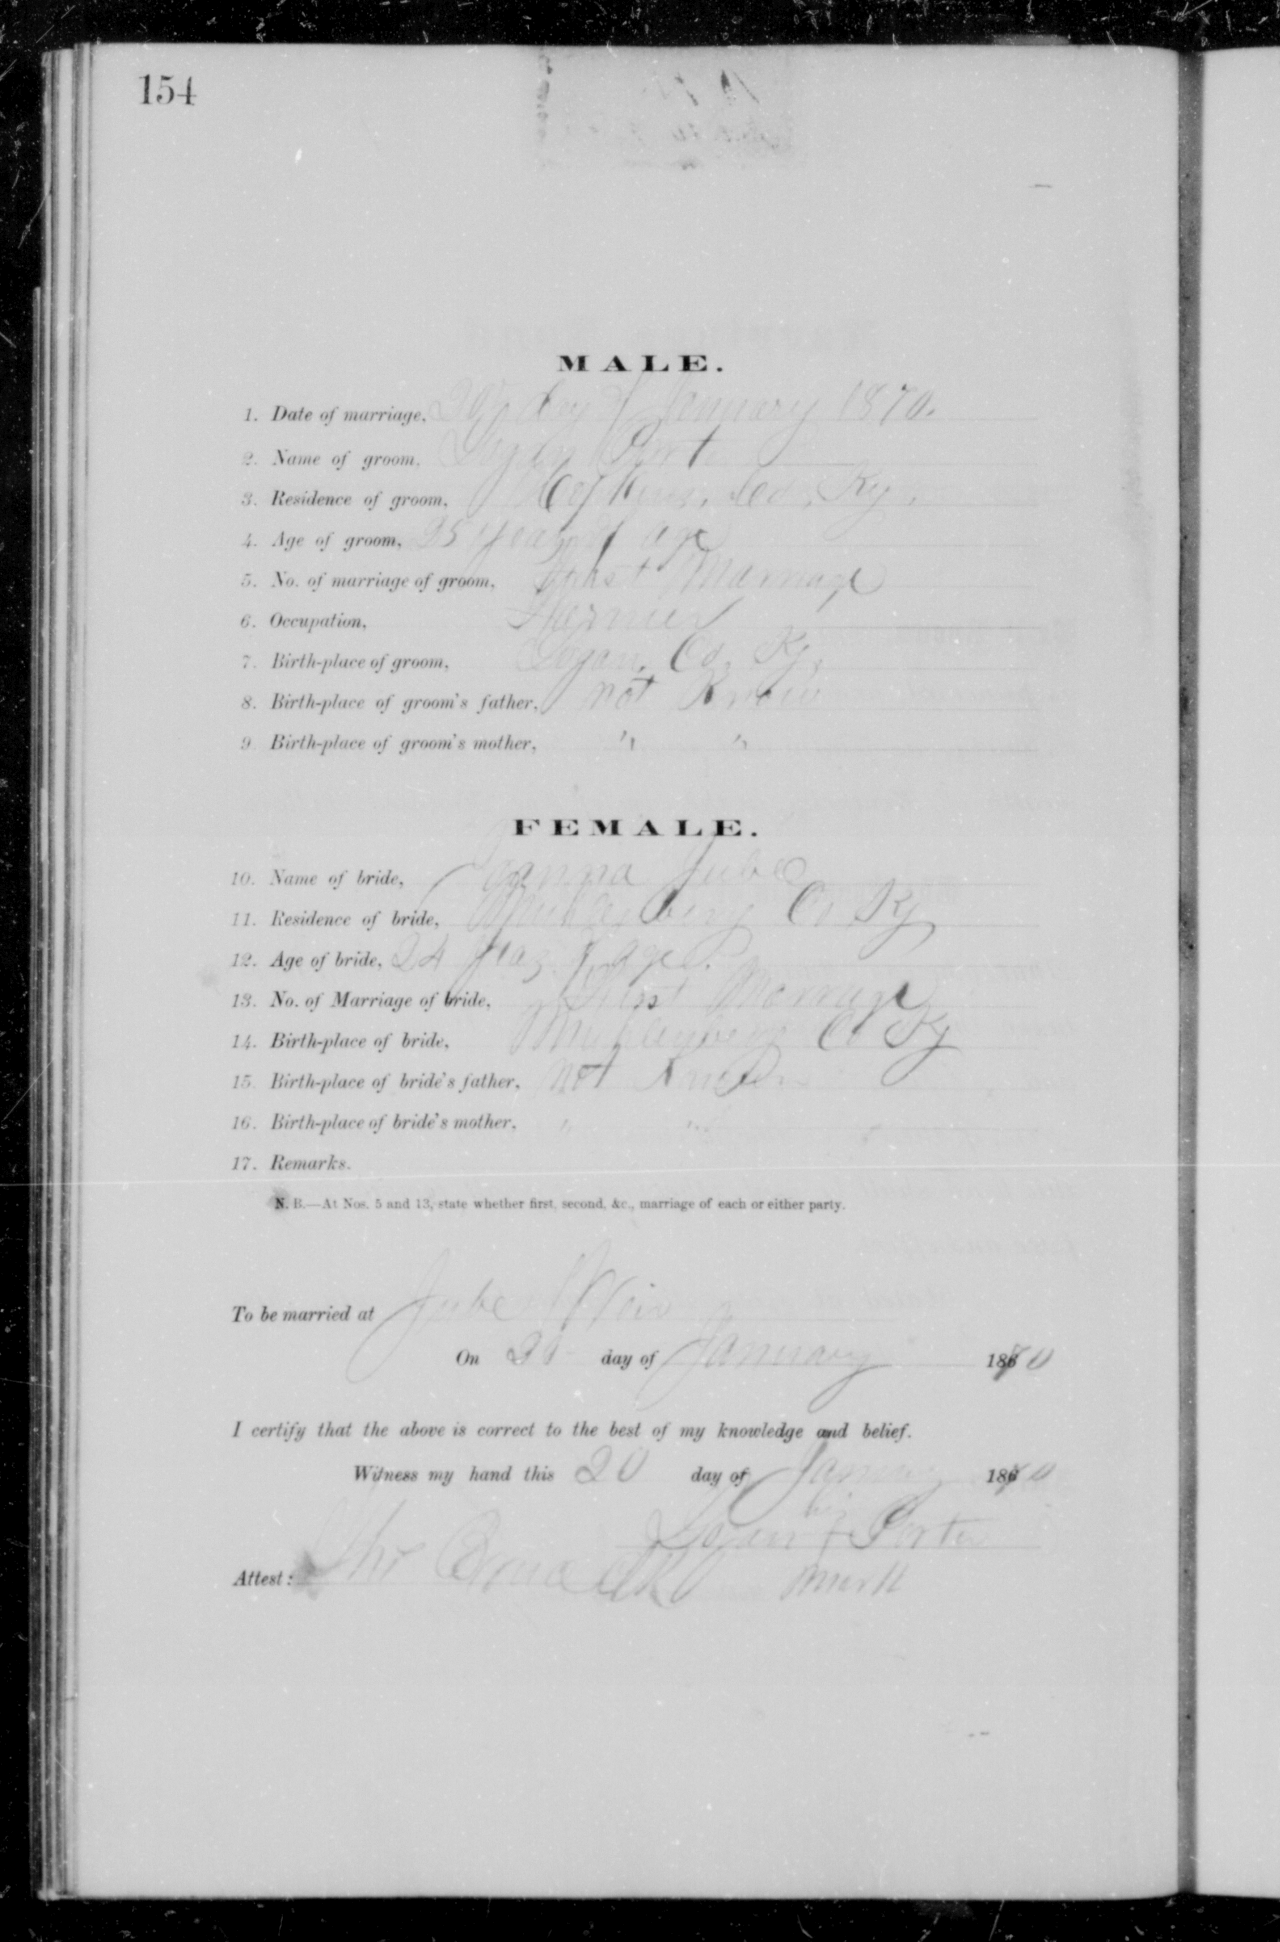 154
MALE.
1. Date of marriage, 20 day of January 1870.
2. Name of groom, Logan Port
3. Residence of groom, Hopkins Co. Ky.
4. Age of groom, 25 years of age
5. No. of marriage of groom, First Marriage
6. Occupation, Farmer
7. Birth-place of groom, Logan Co. Ky.
8. Birth-place of groom's father, not Known
9 Birth-place of groom's mother, " "
FEMALE.
10. Name of bride, Joanna Jube
11. Residence of bride, Muhlenberg Co Ky
12. Age of bride, 24 of age.
13. No. of Marriage of bride, First Marriage
14. Birth-place of bride, Muhlenberg Co Ky
15. Birth-place of bride's father, not Known
16. Birth-place of bride's mother, " "
17. Remarks.
N. B.—At Nos. 5 and 13, state whether first, second, &c., marriage of each or either party.
To be married at Jube
On 20 day of January 1870
I certify that the above is correct to the best of my knowledge and belief.
Witness my hand this 20 day of January 1870
his
Logan + Porter
Attest: mark